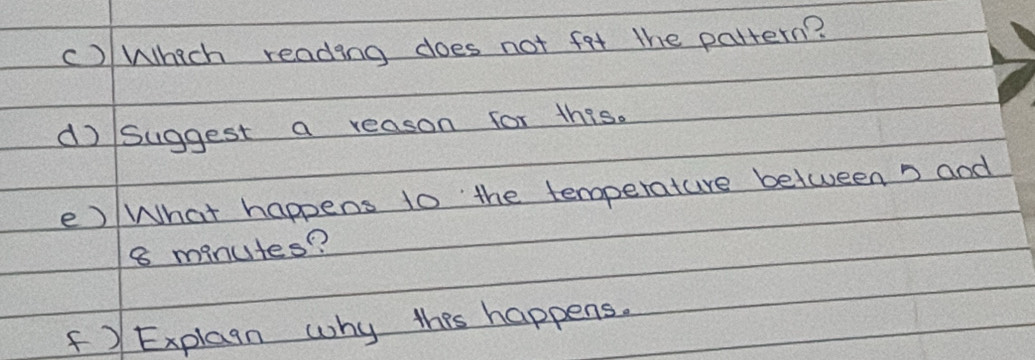 c) Which reading does not fit the pattern?
d) Suggest a reason for this.
e) What happens to the temperature between 5 and
8 minutes?
f) Explain why this happens.